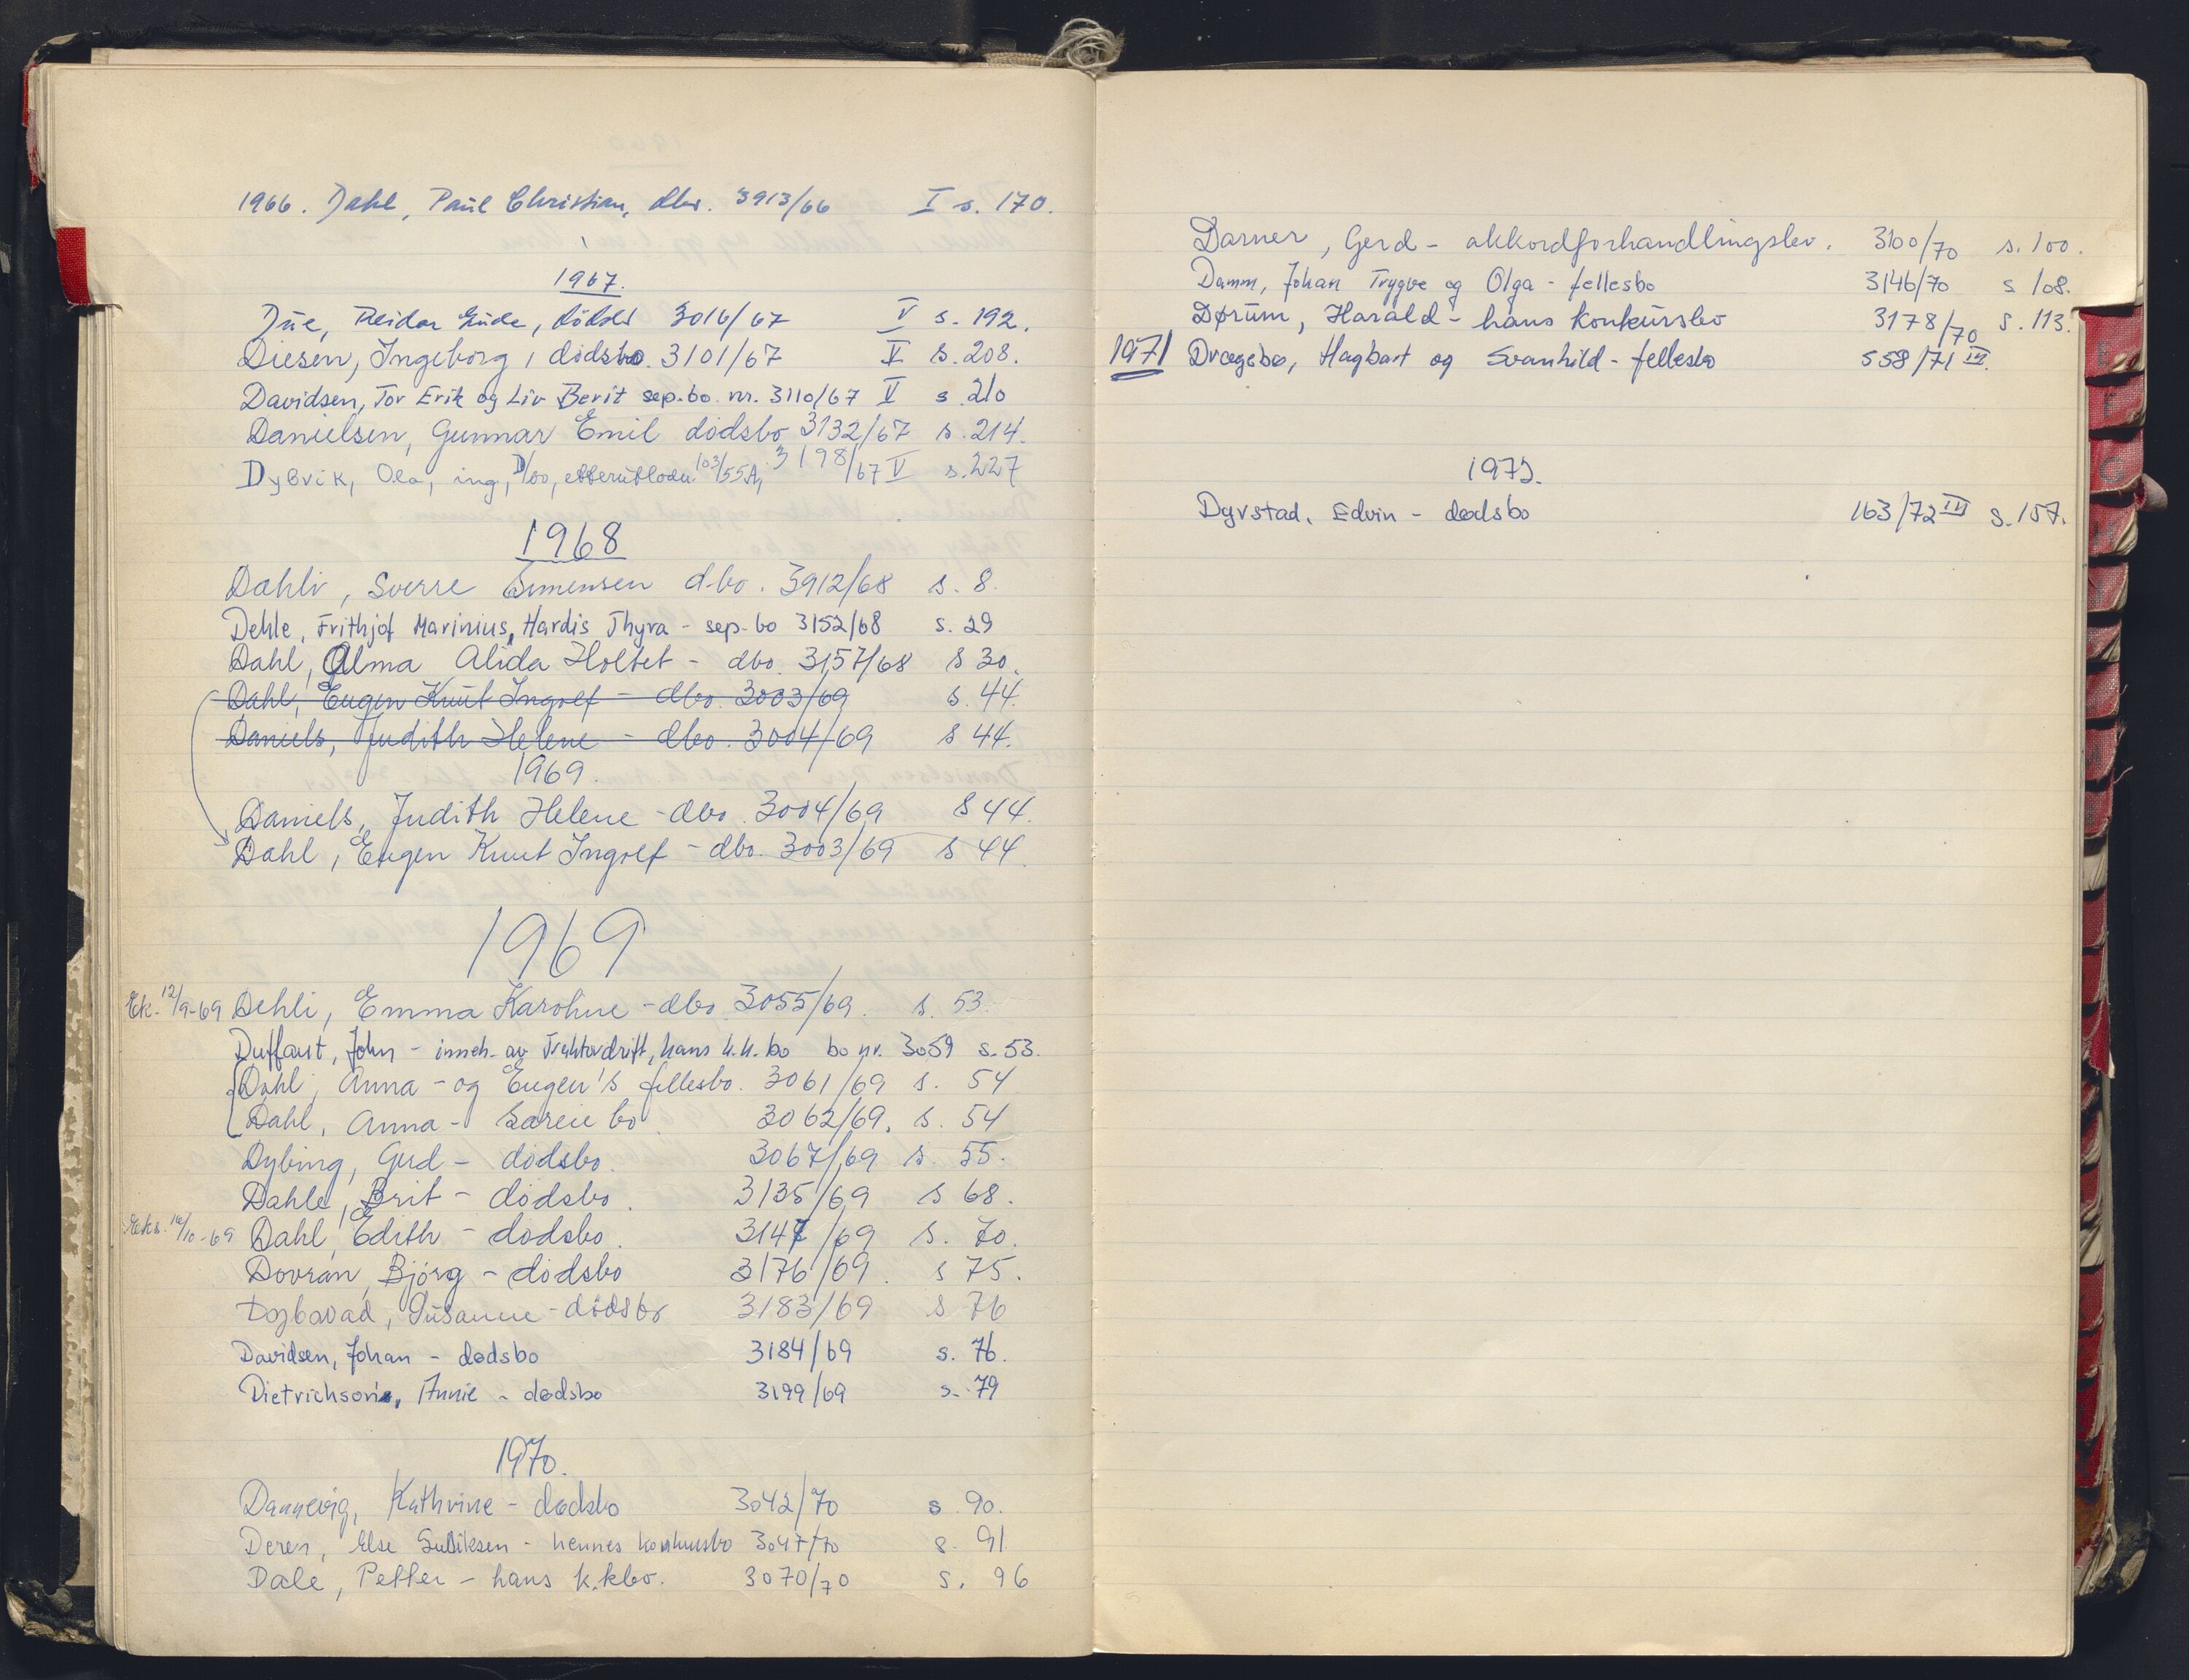 1966. Dahl, Paul Christian, dbo. 3913/66 I s. 170.
1967.
Due, Reidar Gude, dödsb 3016/67 V s. 192.
Diesen, Ingeborg, dødsbo. 3101/67 V s. 208.
Davidsen, Tor Erik og Liv Berit sep.bo. nr. 3110/67 V s 210
Danielsen, Gunnar Emil dødsbo 3132/67 s. 214.
Dybvik, Ola, ing, D/bo, etterutlodn. 103/55A, 3198/67 V s. 227
1968
Dahli, Sverre Simensen d.bo. 3912/68 s. 8.
Dehle, Frithjof Marinius, Hardis Thyra - sep-bo 3152/68 s. 29
Dahl, Alma Alida Holtet - dbo. 3157/68 s 30.
Dahl, Eugen Knut Ingolf - dbo. 3003/69 s. 44.
Daniels, Judith Helene - dbo. 3004/69 s 44.
1969.
Daniels, Judith Helene - dbo. 3004/69 s 44.
Dahl, Eugen Knut Ingolf - dbo. 3003/69 s 44.
1969
Ek. 12/9-69 Dehli, Emma Karoline - dbo. 3055/69. s. 53.
Duffaut, John - inneh. av Traktordrift, hans k.k. bo bo nr. 3059 s. 53.
Dahl, Anna - og Eugen's fellesbo. 3061/69 s. 54
Dahl, Anna - særeie bo. 3062/69. s. 54
Dybing, Gerd - dødsbo. 3067/69 s. 55.
Dahle, Brit - dødsbo. 3135/69 s 68.
Eks. 10/10-69 Dahl, Edith - dødsbo. 3147/69 s. 70.
Dovran, Bjørg - dødsbo 3176/69. s 75.
Susanne - dödsbo 3183/69 s 76
Davidsen, Johan - dødsbo 3184/69 s. 76.
Dietrichson, Annie - dødsbo 3199/69 s. 79
1970.
Dannevig, Kathrine - dødsbo 3042/70 s. 90.
Deren, Else - hennes konkursbo 3047/70 s. 91
Dale, Petter - hans k.kbo. 3070/70 s. 96
Darner, Gerd - akkordforhandlingsbo. 3100/70 s. 100.
Damm, Johan Trygve og Olga - fellesbo 3146/70 s 108.
Dørum, Harald - hans konkursbo 3178/70 s. 113.
1971 Drægebø, Hagbart og Svanhild - fellesbo 558/71 III.
1972.
Dyrstad, Edvin - dødsbo 163/72 III s. 157.
E
F
G